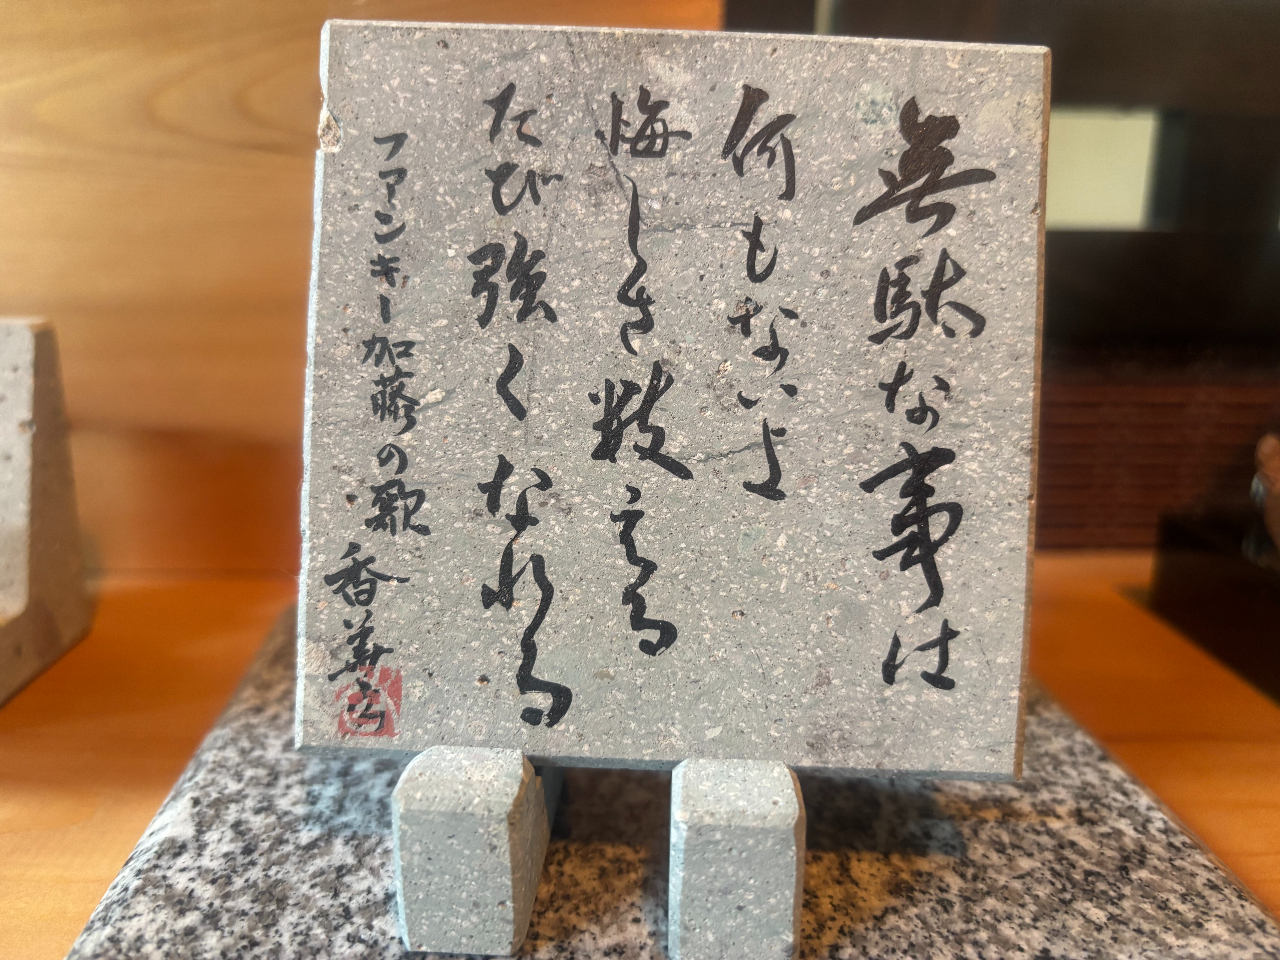 無駄な事は
何もないよ
悔しさ数える
たび強くなれる
ファンキー加藤の歌
香